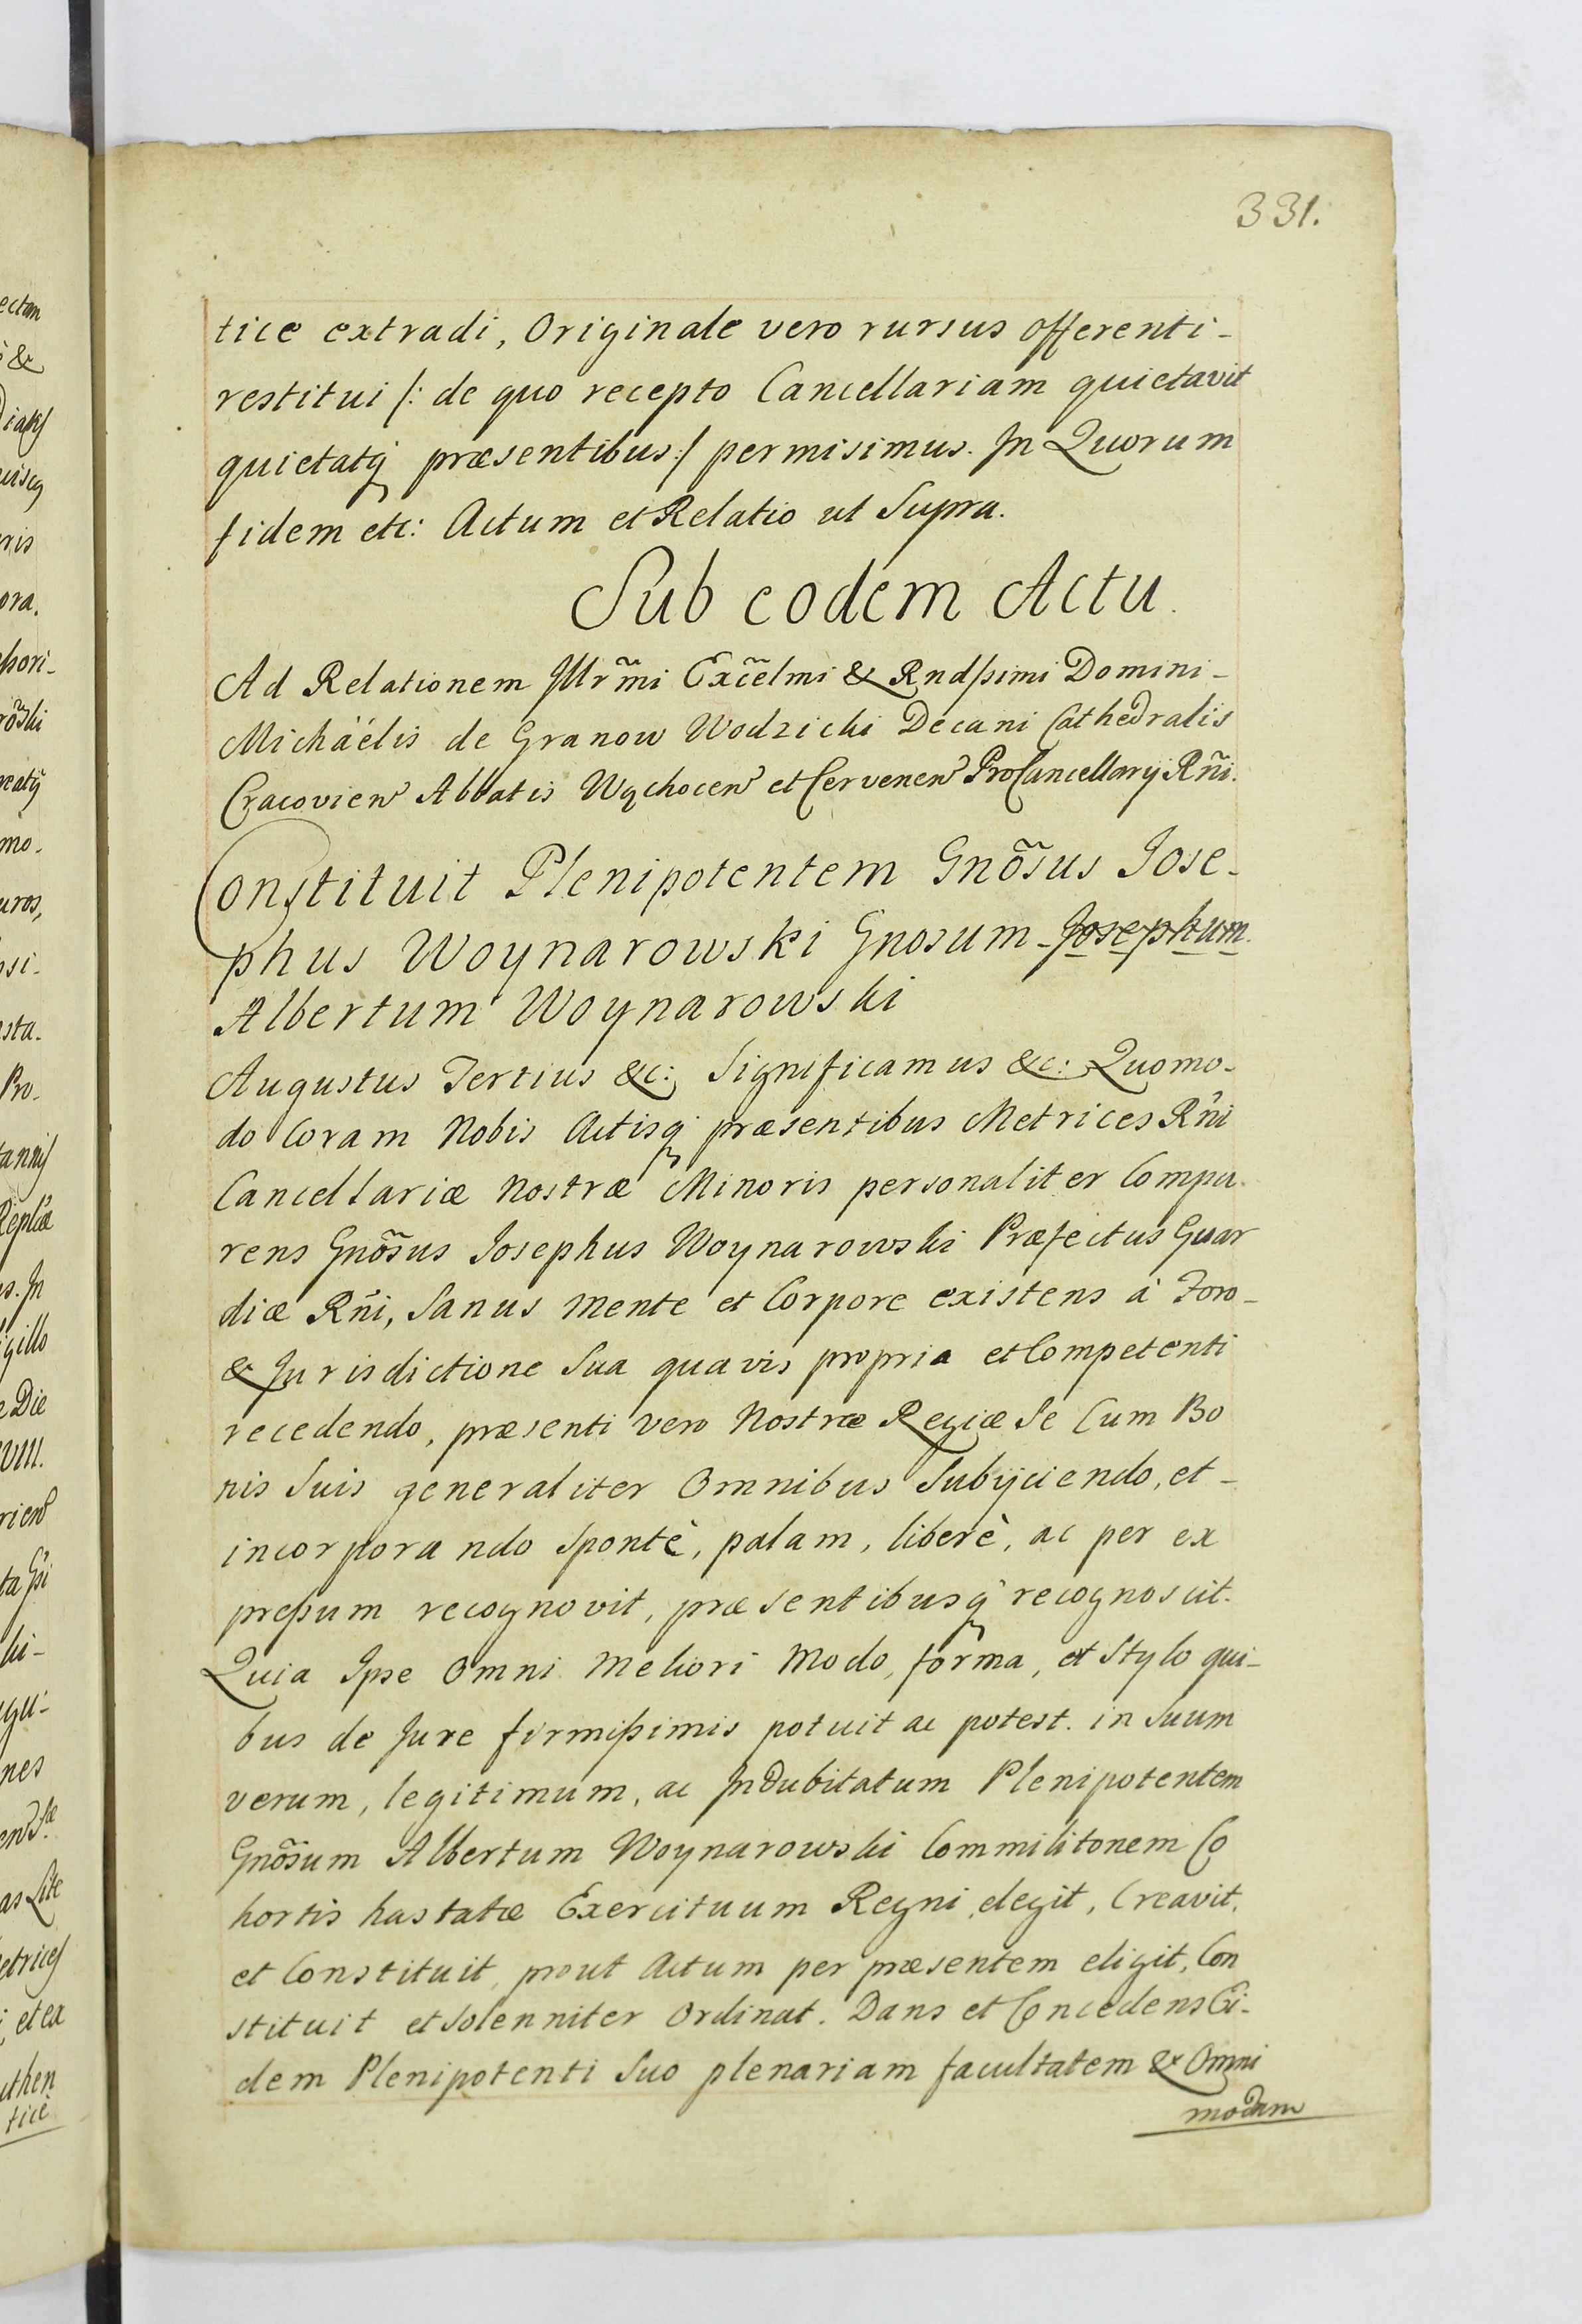 331.
tice extradi, Originale vero rursus offerenti-
restitui /: de quo recepto Cancellariam quietavit
quietatq præsentibus :/ permisimus. In Quorum
fidem etc: Actum et Relatio ut Supra.
Sub eodem Actu.
Ad Relationem Illr̃mi Exc̃elmi & Rndssimi Domini-
Micháélis de Granow Wodzicki Decani Cathedralis
Cracovien Abbatis Wąchocen et Cervenen ProCancellarij Rñi.
Constituit Plenipotentem Gnõsus Jose-
phus Woynarowski Gnosum - Josephum
Albertum Woynarowski
Augustus Tertius &c: Significamus &c: Quomo-
do Coram Nobis Actisq præsentibus Metrices Rñi
Cancellariæ Nostræ Minoris personaliter Compa-
rens Gnõsus Josephus Woynarowski Præfectus Guar
diæ Rñi, Sanus mente et Corpore existens à Foro-
& Jurisdictione Sua quavis propria et Competenti
recedendo, præsenti vero Nostræ Regiæ Se Cum Bo
nis Suis generaliter Omnibus Subijciendo, et-
incorporando Spontè, palam, liberè, ac per ex
pressum recognovit, præsentibusq recognoscit.
Quia Ipse Omni Meliori Modo, forma, et Stylo qui-
bus de Jure firmissimis potuit ac potest. in Suum
verum, legitimum, ac Indubitatum Plenipotentem
Gnõsum Albertum Woynarowski Commilitonem Co
hortis hastatæ Exercituum Regni elegit, Creavit,
et Constituit, prout Actum per præsentem eligit, Con
stituit et Solenniter Ordinat. Dans et Concedens Ei-
dem Plenipotenti Suo plenariam facultatem & Omni
modam